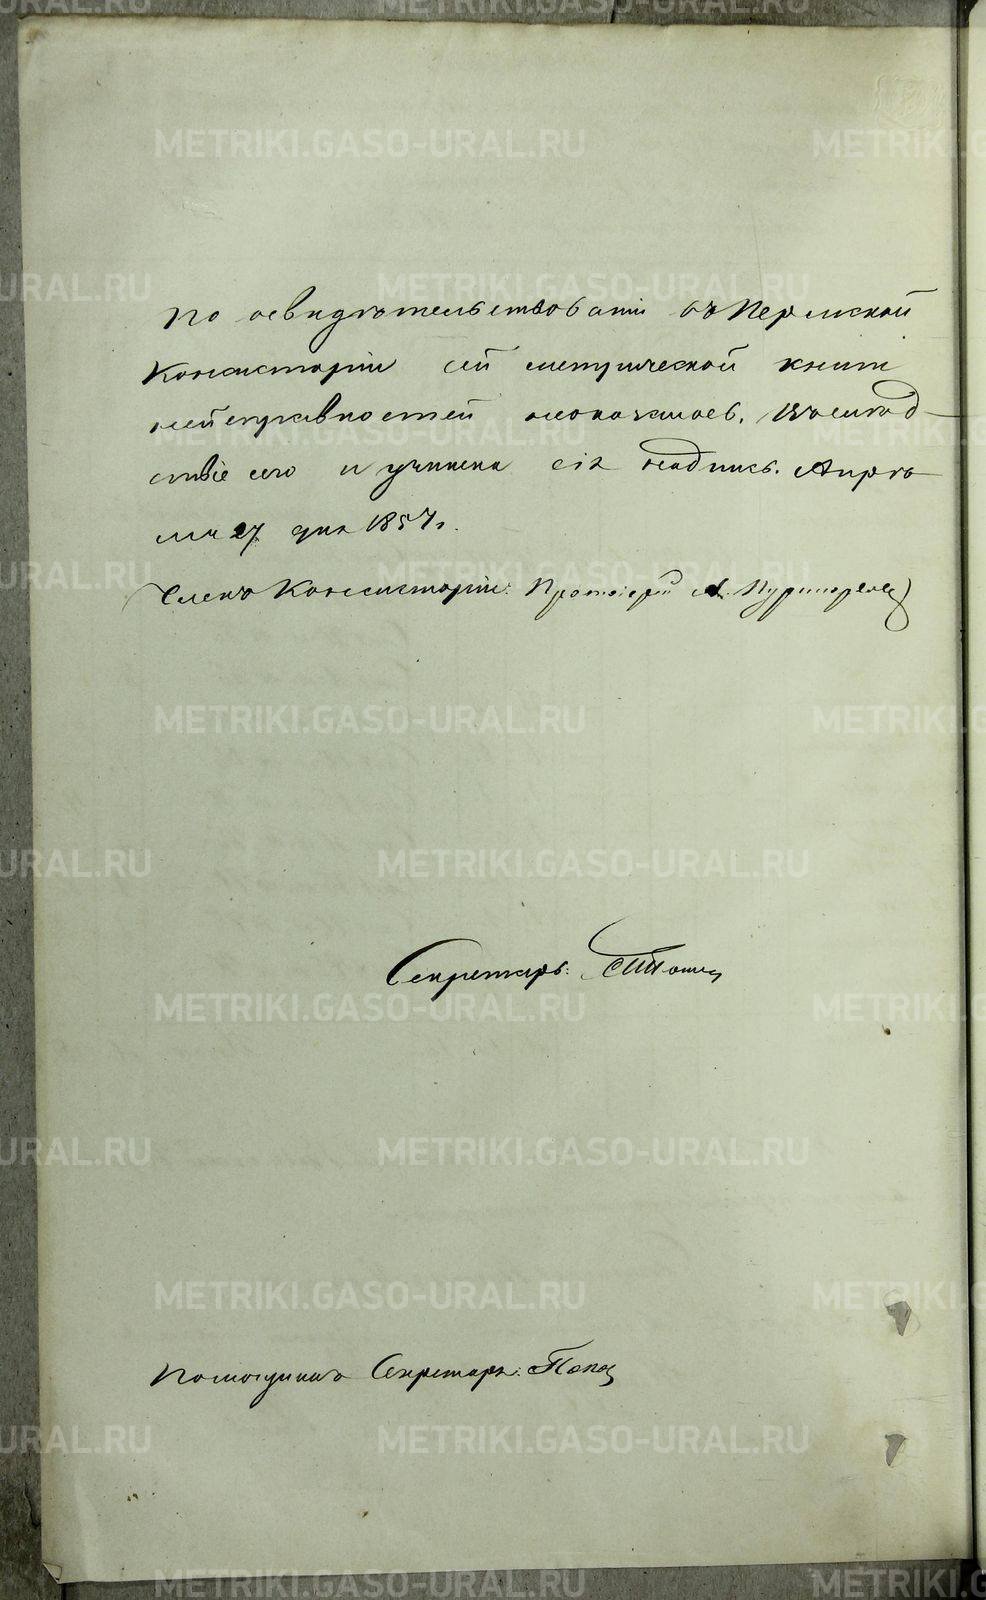 По освидѣтельствованіи въ Пермской
Консисторіи сей метрической книги
неисправностей неоказалось. Въ слѣд-
ствіе чего и учинена сія надпись. Апрѣ-
ля 27 дня 1857 г.
Членъ Консисторіи: Протоіерей А.
Секретарь:
Помощникъ Секретаря: Попов
METRIKI.GASO-URAL.RU